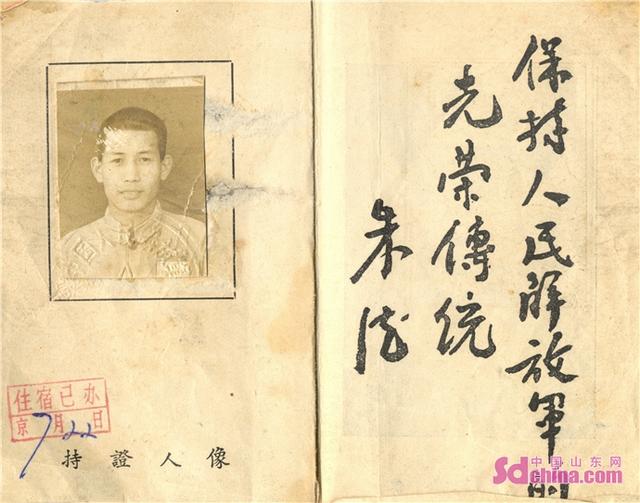 保持人民解放军的
光荣傳统
朱德
住宿已办
京7月22日
像人證持
中国山东网
Sdchina.com